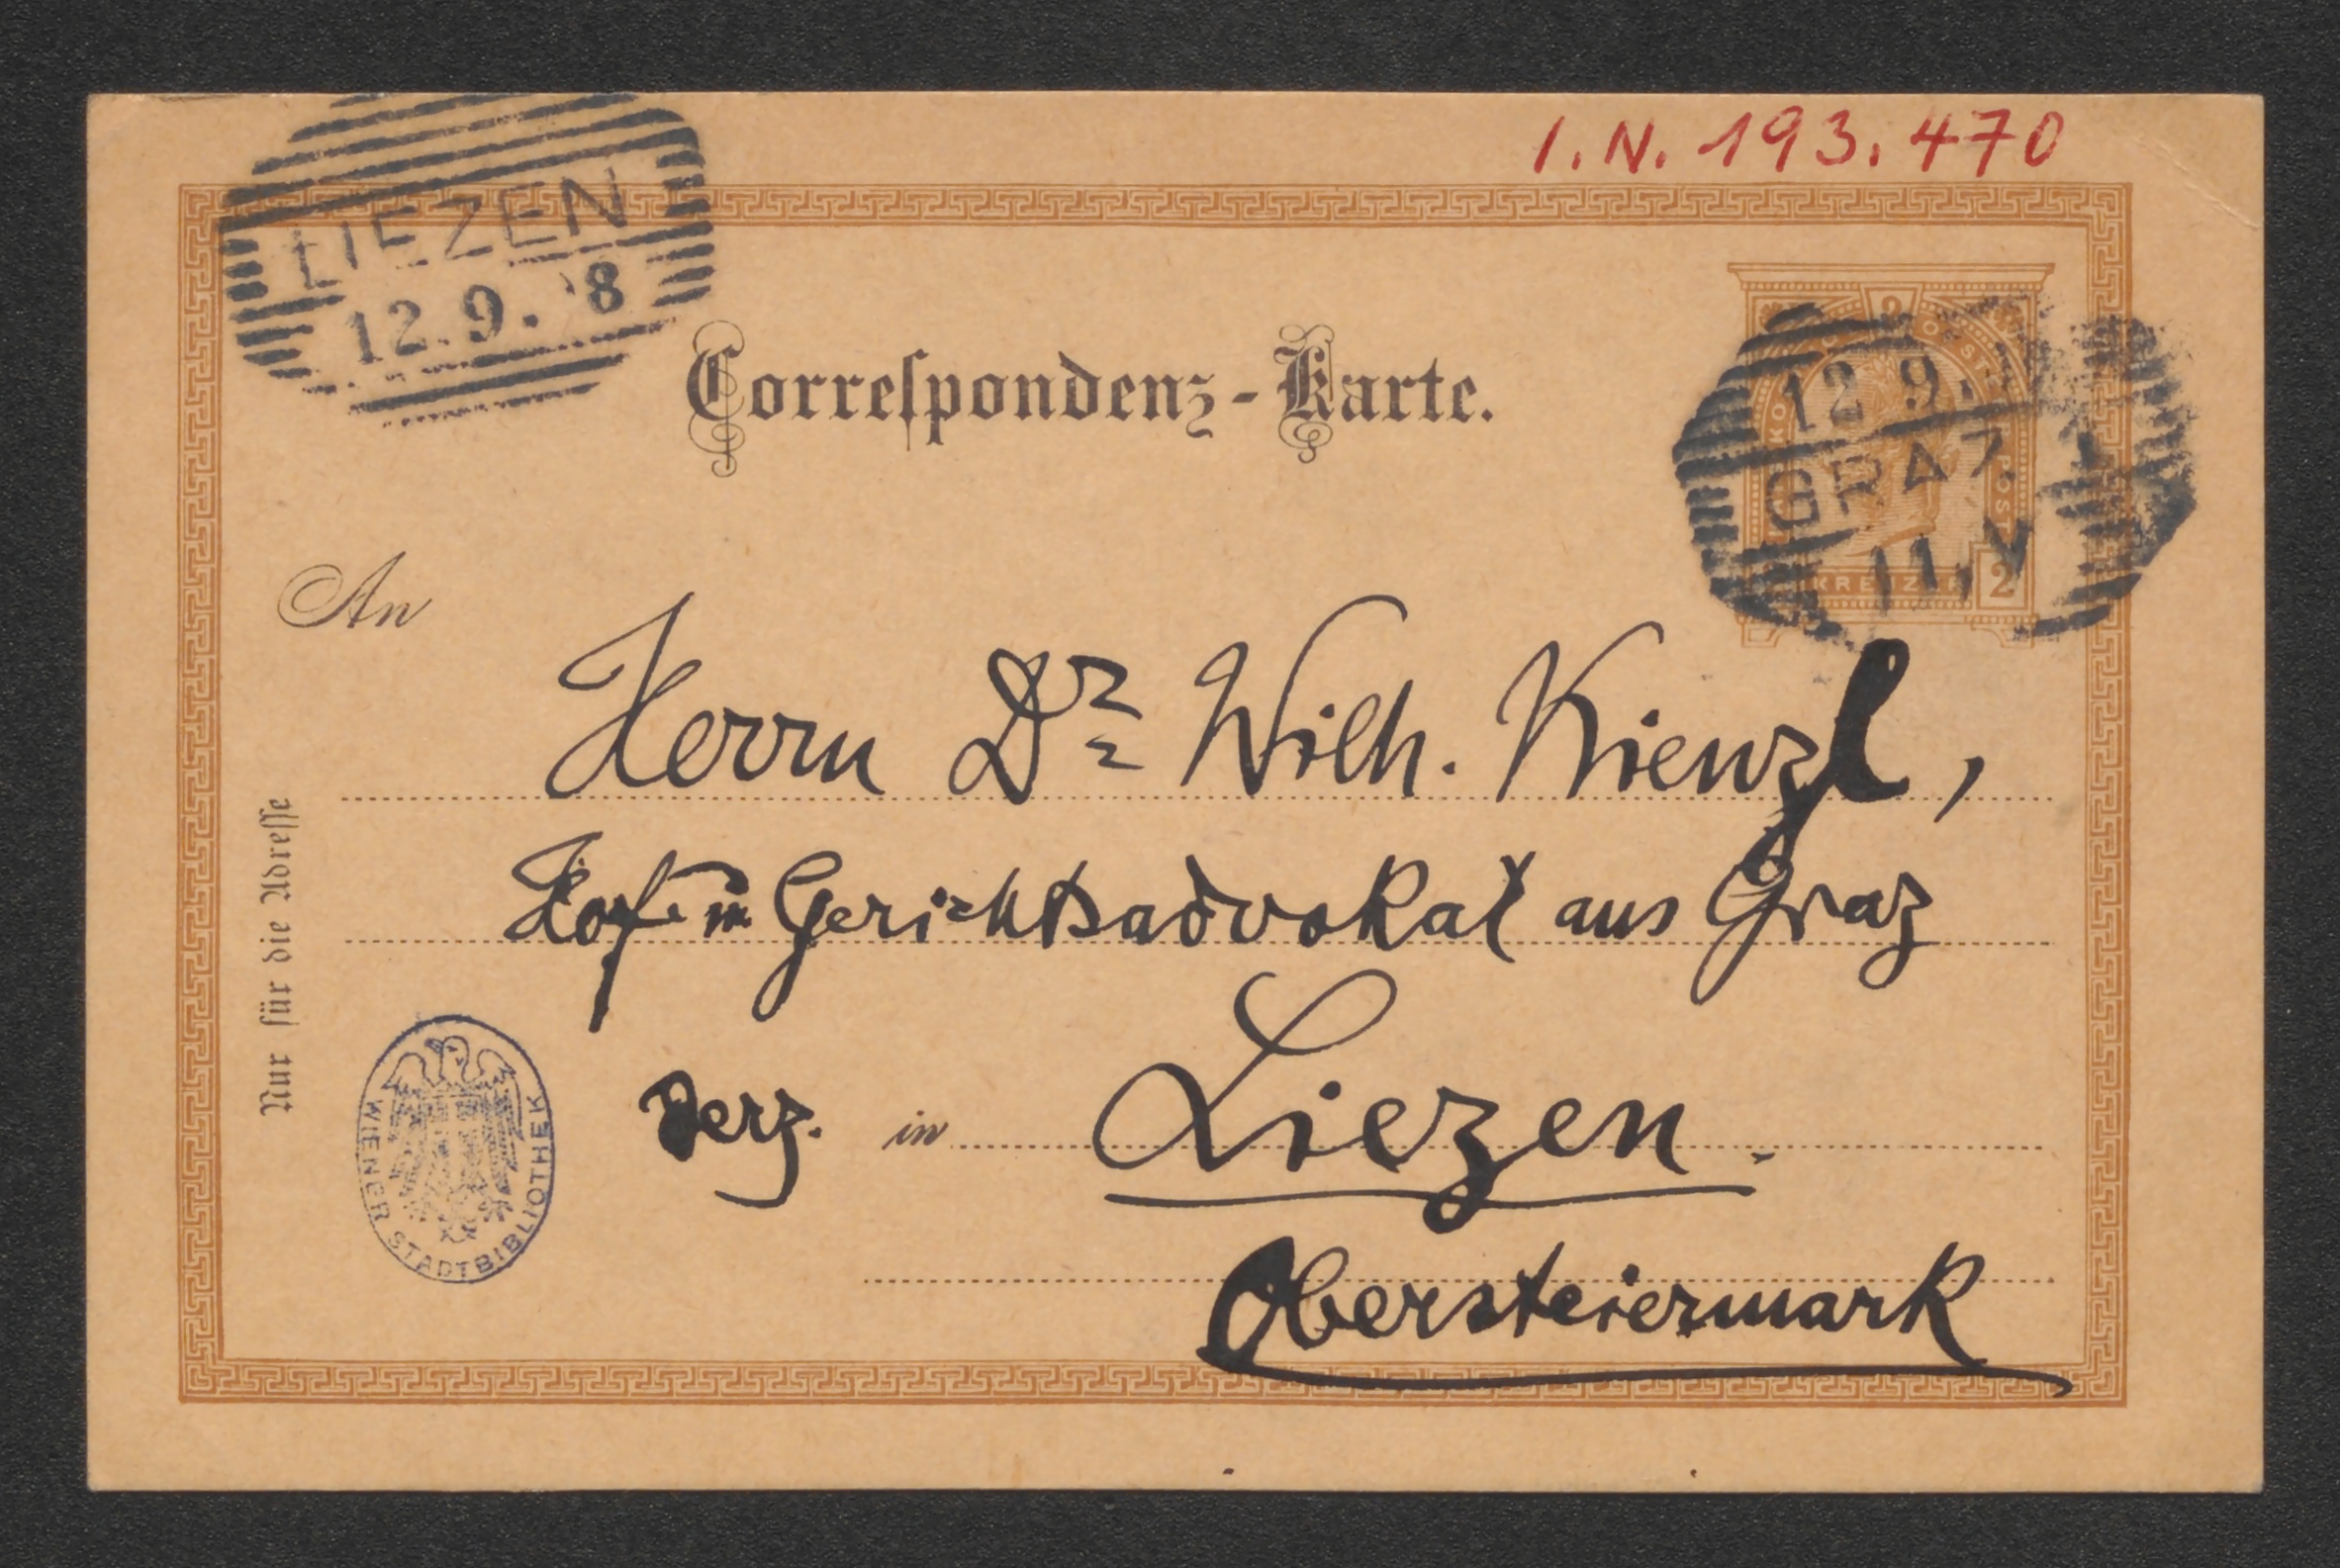 I.N. 193.470
LIEZEN
12.9. 8
Correspondenz-Karte.
2
12 9.
GRAZ
11.V
KREUZER 2
An
Herrn Dr Wilh. Kienzl,
Hof- u Gerichtsadvokat aus Graz
derz. in Liezen.
Obersteiermark
Nur für die Adresse
WIENER STADTBIBLIOTHEK